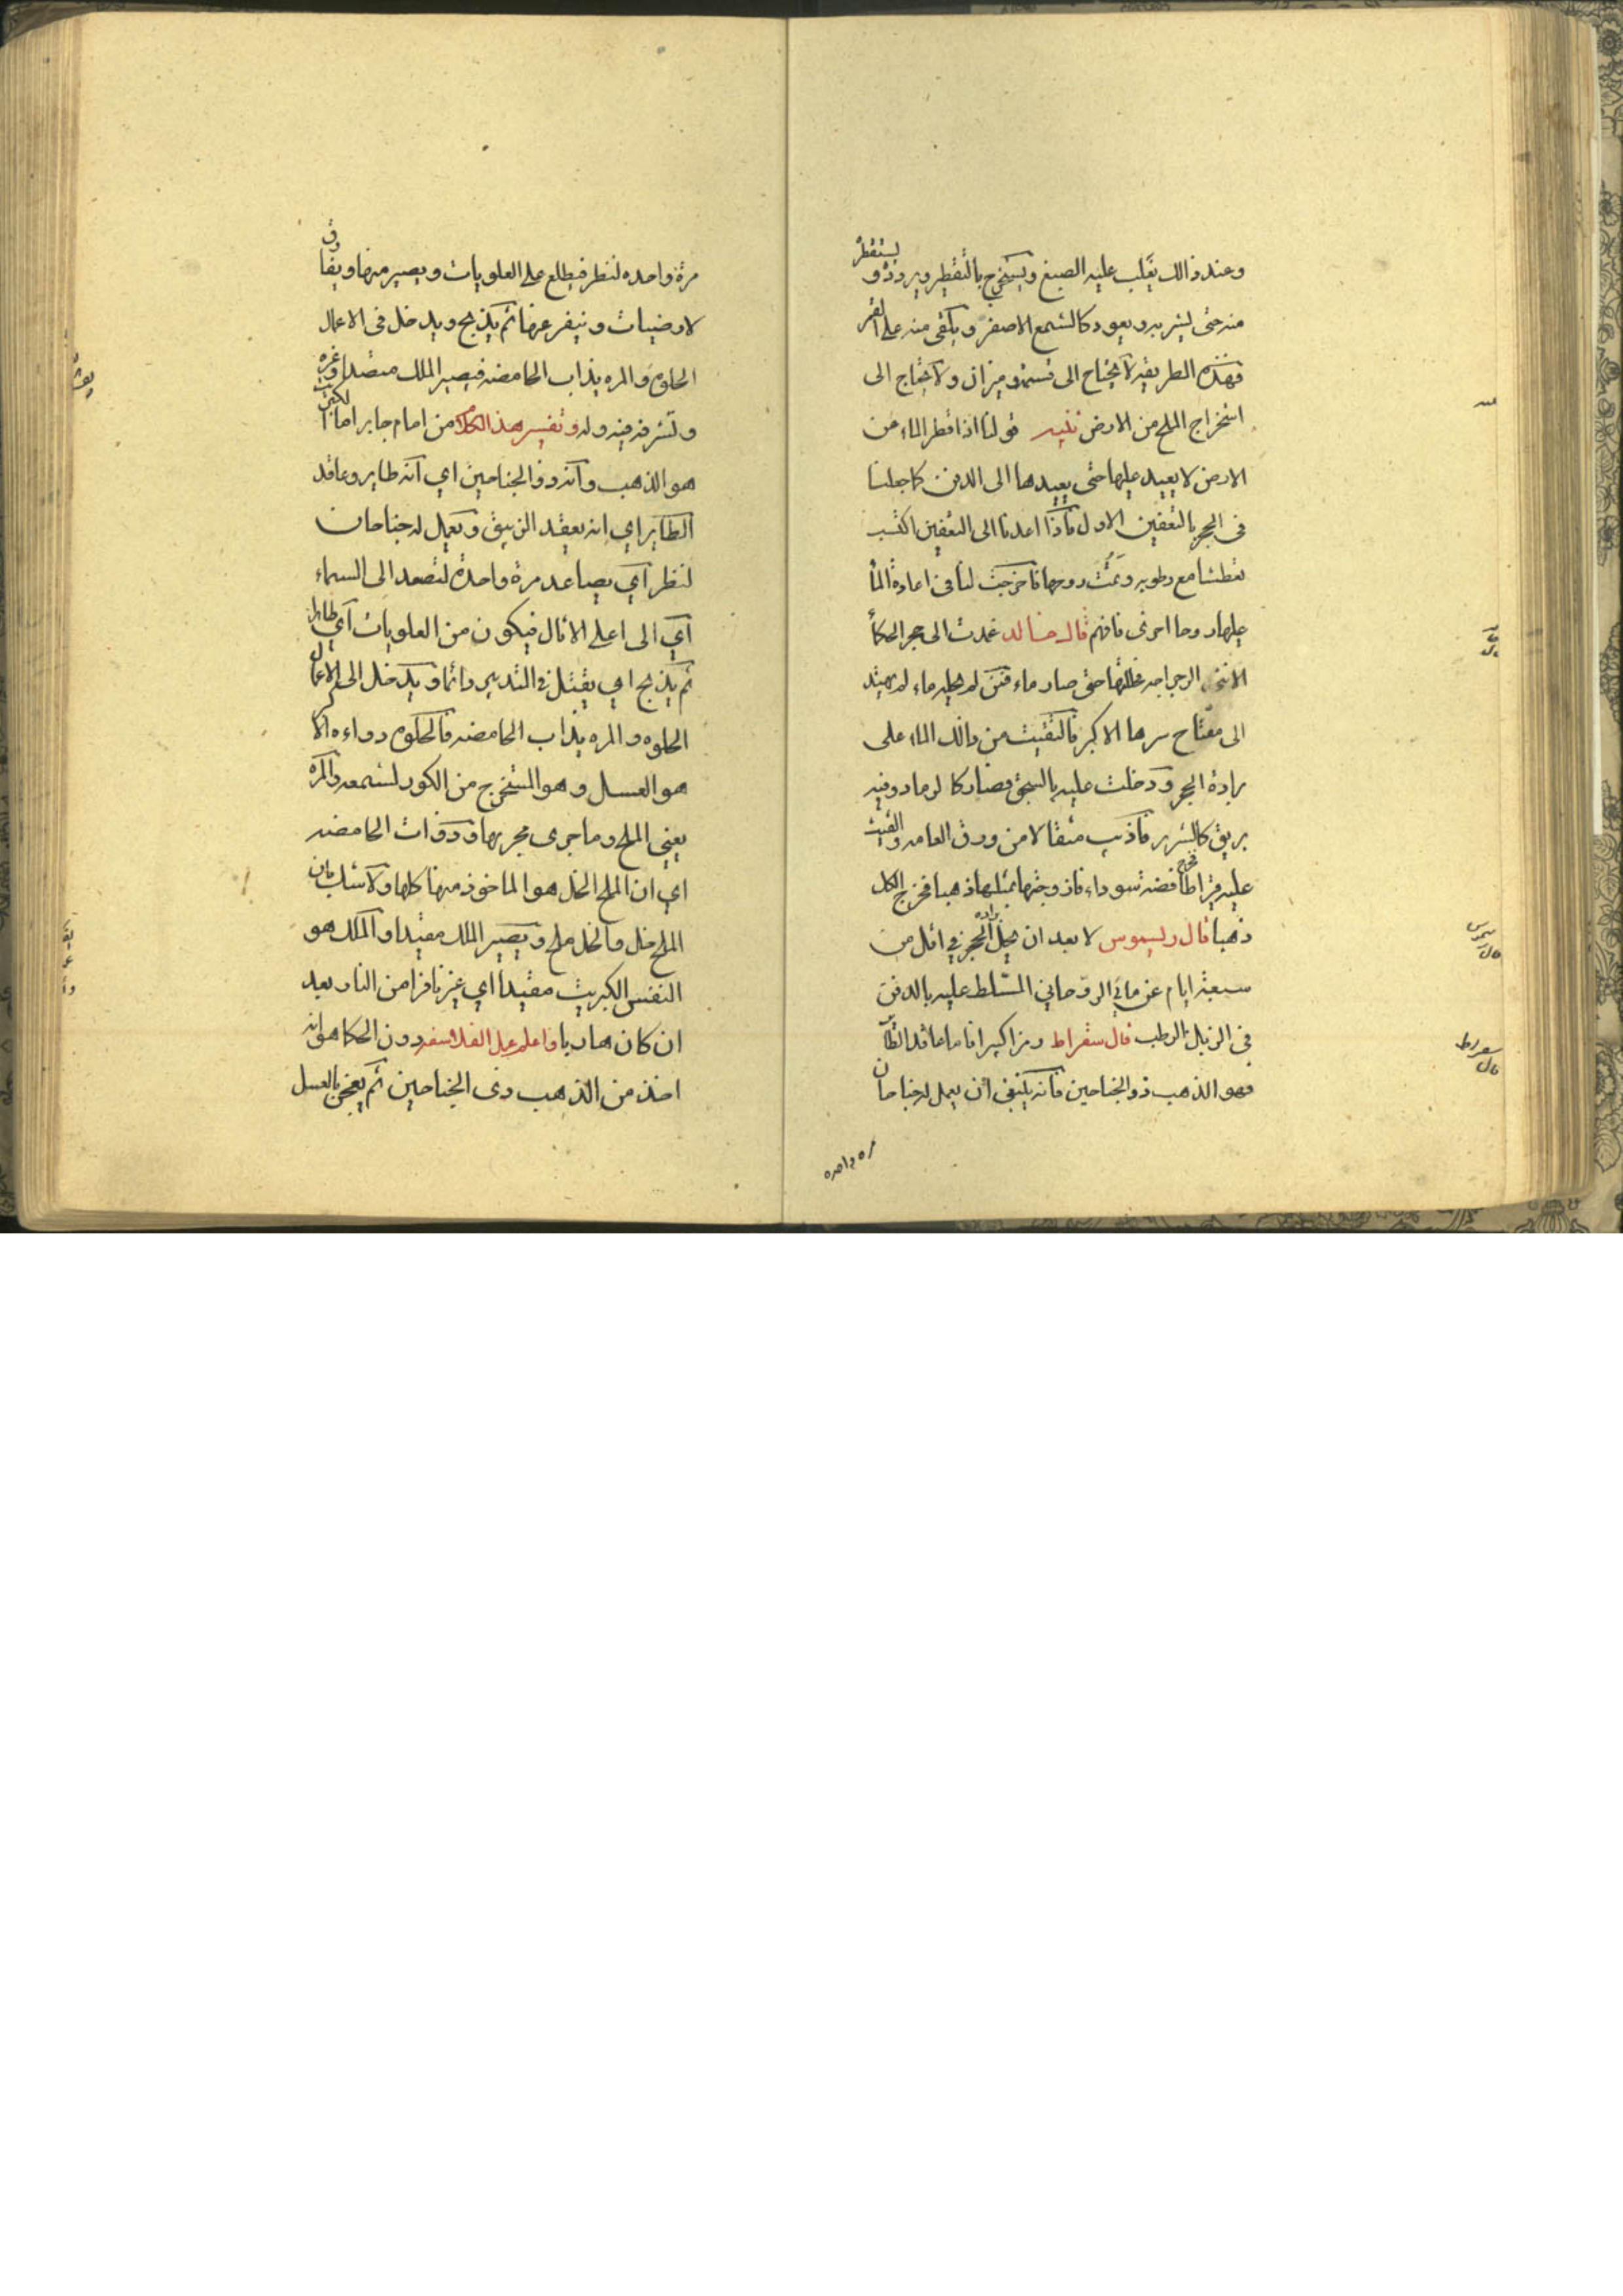 وعند ذالك يقلب عليه الصبغ ويستخرج بالتقطير ويردد و يستقطر
منه حتى يشربه ويعود كالشمع الاصفر ويلقى منه على القمر
فهذه الطريقة لا يحتاج الى قسمة وميزان ولا يحتاج الى
استخراج الملح من الارض تنبيه قولنا اذا قطر الماء من
الارض لا يعيد عليها حتى يعيدها الى الدفن كما جعلنا
فى الحجر بالتعفين الاول فاذا اعدنا الى التعفين اكتسب
تعطشا مع رطوبه وتمت روحها فاخرجت لنا فى اعادة الماء
عليها روحا اخرى فافهم قال خالد عمدت الى حجر الحكماء
الرجراجه حتى صار ماء فمن لم يحله ماء لم يهتد
الى مفتاح سرها الاكبر فالتقيت من ذالك الماء على
برادة الحجر ودخلت عليه بالسحق فصار كالرماد وفيه
بريق كالشرر فاذيب مثقالا من ورق العامه والقيت
عليه قيراطا فخرج فضه سوداء فازوجتها بمثلها ذهبا فخرج الكل
ذهبا قال ريسموس لا بعد ان يحل براده الحجر فى اقل من
سبعة ايام عن مائى الروحاني المسلط عليه بالدفن
فى الزبل الرطب قال سقراط رمز اكبر انا ما عاقد الطاير
فهو الذهب ذو الجناحين فانه يكتفى ان يعمل له جناحان
مره واحده
قال ريسموس
قال سقراط
مرة واحده لتظر فيطلع على العلويات ويصير منها ويفارق
لارضيات وينفر عنها ثم يذبح ويدخل فى الاعمال
الحلوه والمره بذاب الحامضه فيصير الملك متصدا وغيره
وتشرفه فيه وله وتفسير هذا الكلام من امام جابر اما الكبريت
هو الذهب وانه ذو الجناحين اي انه طاير وعاقد
الطاير اي انه يعقد الزيبق ويعمل له جناحان
لتظر اي يصاعد مرة واحدة لتصعد الى السماء
اي الى اعلى الاثال فيكون من العلويات اي طاير
ثم يذبح اي يقتل فى التدبير دائما ويدخل الى الاعمال
الحلوه والمره بذاب الحامضه فالحلوه دواءه الا
هو العسل وهو المستخرج من الكور لشمعه والمره
يعنى الملح وما جرى مجريها وذوات الحامضه
اي ان الملح الخل هو الماخوذ منها كلها ولا شك بان
الملح خل والخل ملح ويصير الملك مقيدا والملك هو
النفس الكبريت مقيدا اي غير نافرا من النار بعد
ان كان هاربا واعلم عمل الفلاسفه دون الحكما هو انه
اخذ من الذهب ذى الجناحين ثم يعجن بالعسل